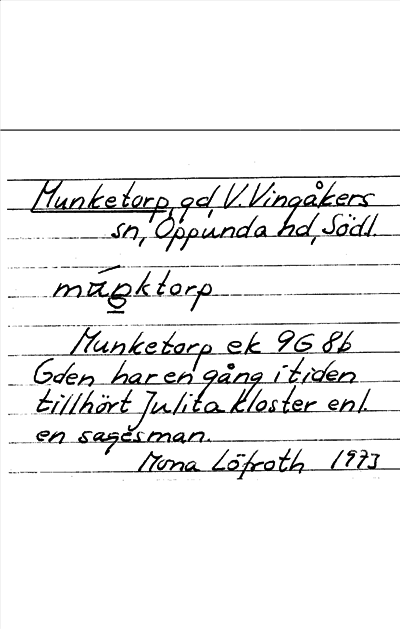 Munketorp, gd, V. Vingåkers
sn, Oppunda hd, Södl.
mánktorp
Munketorp ek 9G 8b
Gden har en gång i tiden
tillhört Julita kloster enl.
en sagesman.
Mona Löfroth 1973